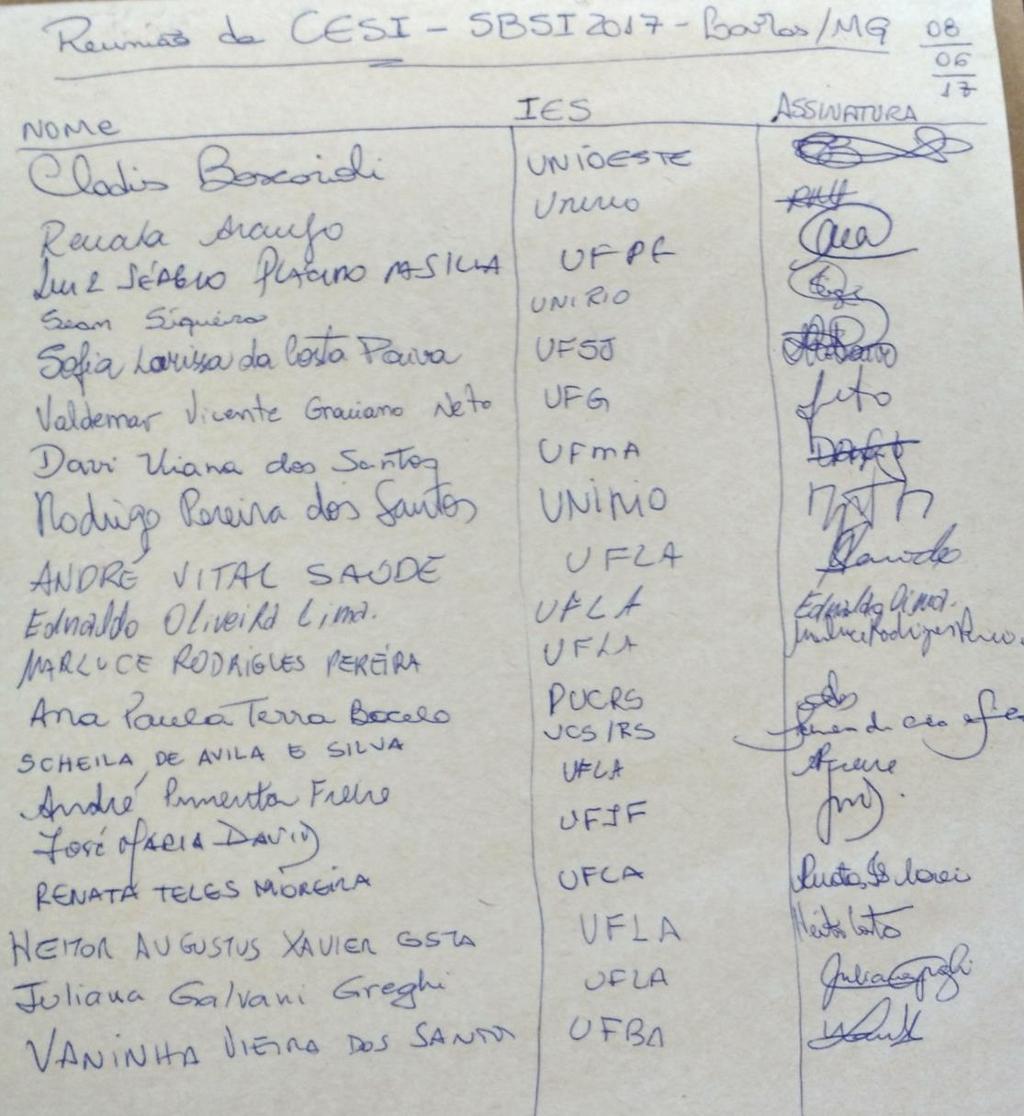 Reunião da CESI - SBSI 2017 - Lavras/MG 08/06/17
NOME IES ASSINATURA
Clodis Boscarioli UNIOESTE
Renata Araujo Unirio
Luiz SÉRGIO PLÁCIDO DA SILVA UFPE
Sean Siqueira UNIRIO
Sofia Larissa da Costa Paiva UFSJ
Valdemar Vicente Graciano Neto UFG Neto
Davi Viana dos Santos UFMA
Rodrigo Pereira dos Santos UNIRIO
ANDRÉ VITAL SAÚDE UFLA
Ednaldo Oliveira Lima. UFLA Ednaldo Lima.
MARLUCE RODRIGUES PEREIRA UFLA Marluce Rodrigues Pereira
Ana Paula Terra Bacelo PUCRS
SCHEILA DE AVILA E SILVA UCS/RS
André Pimenta Freire UFLA Afreire
José MARIA DAVID UFJF
RENATA TELES MOREIRA UFLA
HEITOR AUGUSTUS XAVIER COSTA UFLA Heitor Costa
Juliana Galvani Greghi UFLA
VANINHA VIEIRA DOS SANTOS UFBA